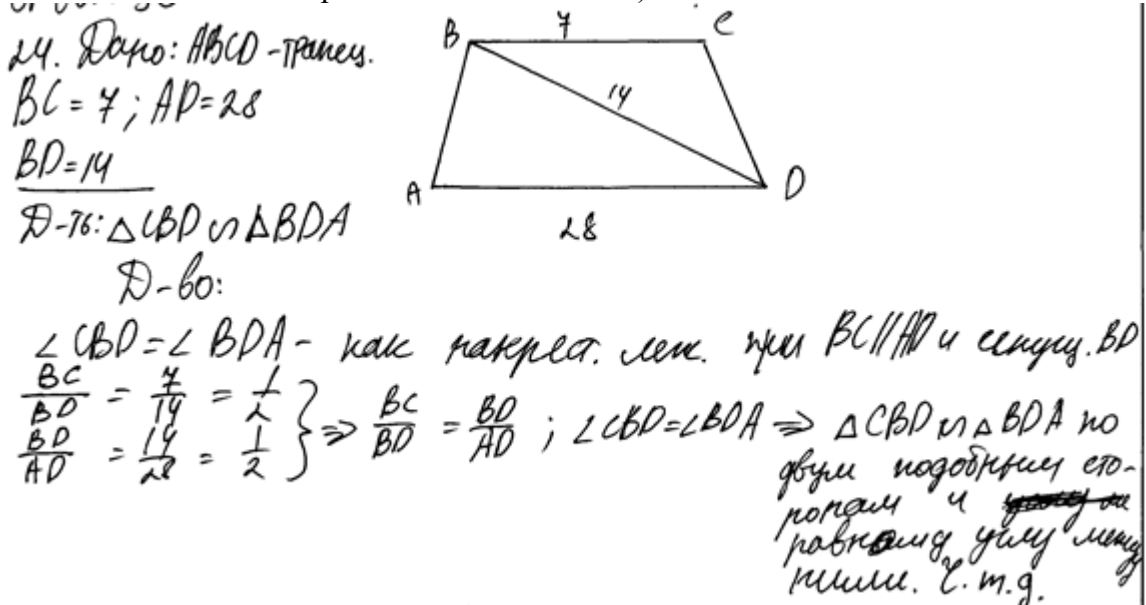 24. Дано: ABCD - трапец.
BC = 7 ; AD = 28
BD = 14
Д-ть: △CBD ∽ △BDA
Д-во:
B 7 C
14
A D
28
∠CBD = ∠BDA - как накрест. леж. при BC||AD и секущ. BD
BC/BD = 7/14 = 1/2
BD/AD = 14/28 = 1/2 } ⇒ BC/BD = BD/AD ; ∠CBD = ∠BDA ⇒ △CBD ∽ △BDA по
двум подобным сто-
ронам и
равному углу между
ними. Ч.т.д.